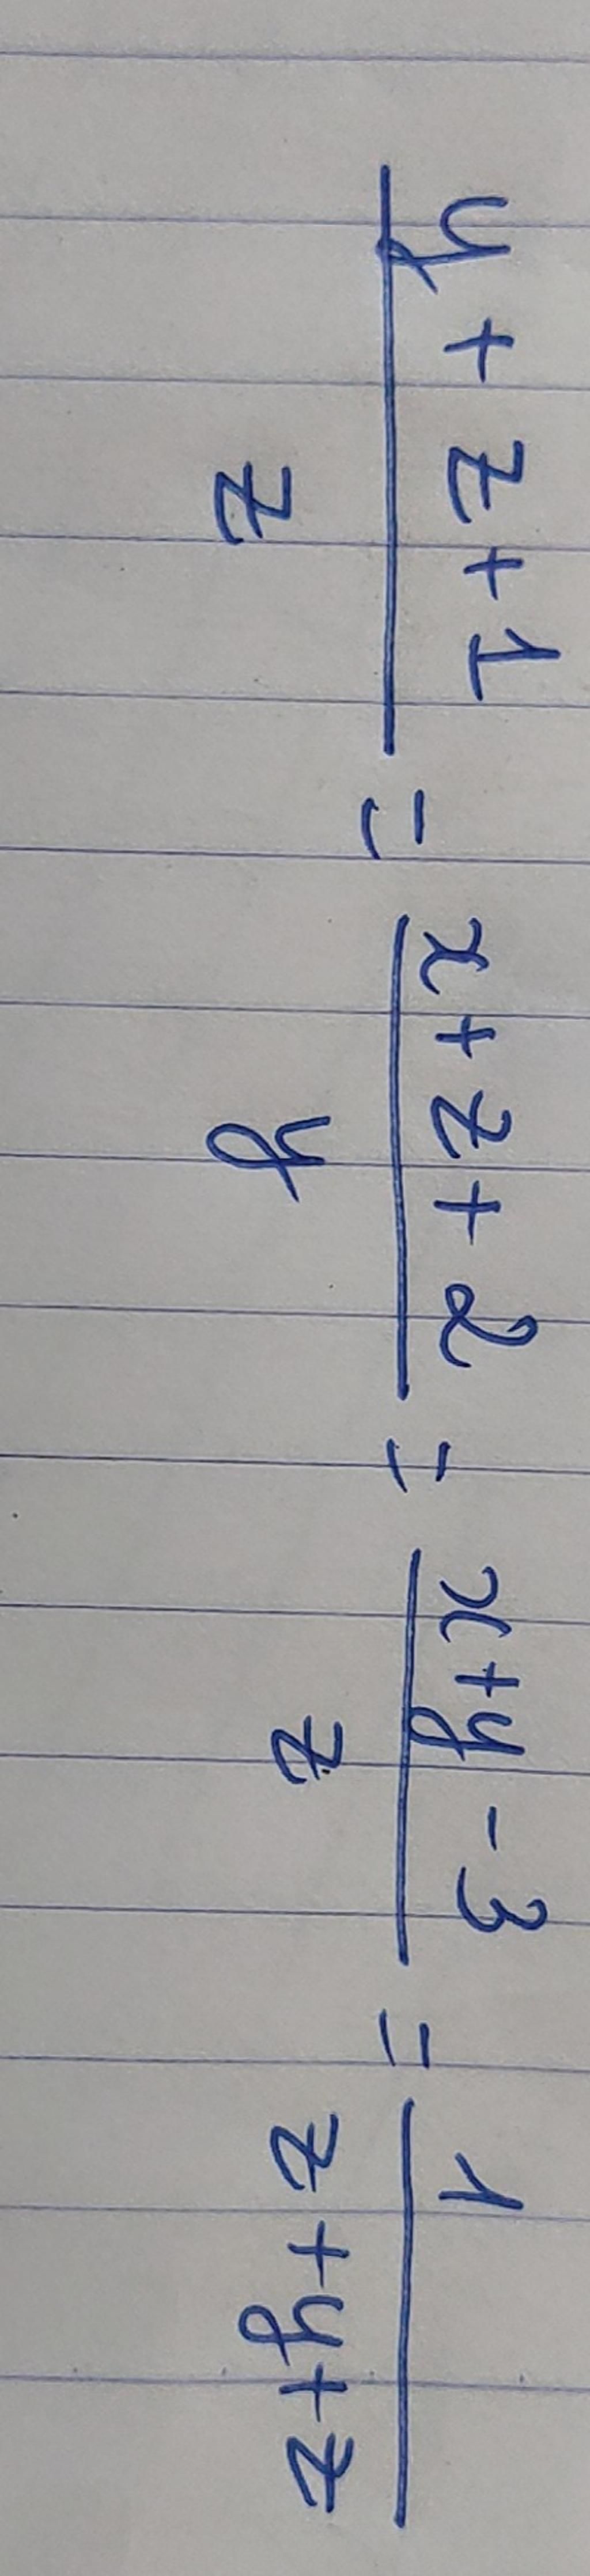 y + z + 1 / z = x + z + 2 / y = x + y - 3 / z = 1 / z + y + z